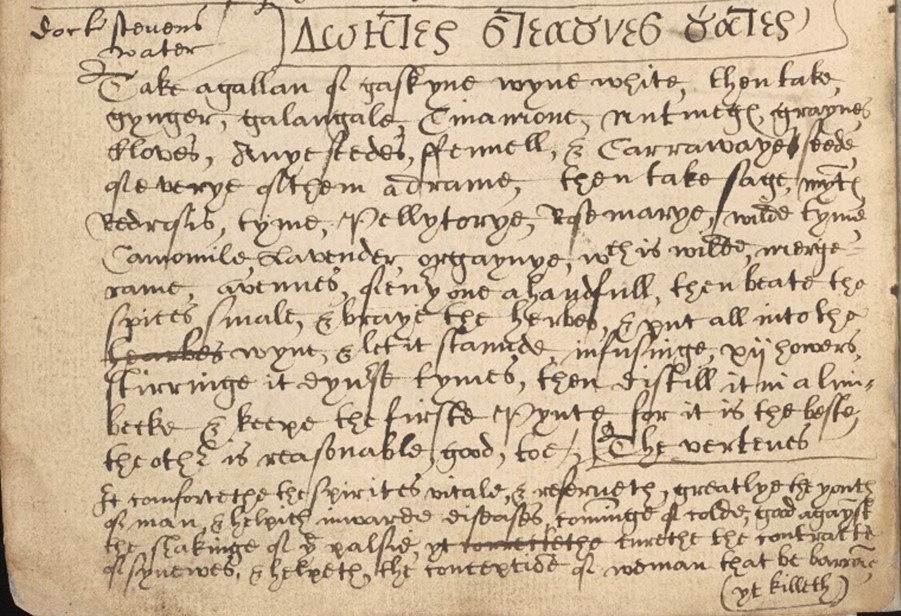 doct stevens
water
Δωκτερς στεαυνες υατερς
Take a gallan of gaskyne wyne white, then take
gynger, galangale, Cinamone, nutmegs, graynes
Cloves, Anyeseedes, ffennell, & Carrawayes seede
of everye of them a drame, then take sage, mynts
Redrosis, tyme, Pellytorye, Rosemarye, wilde tyme
Camomile Lavender orgaynye, wch is wilde, merge=
rame, avennes, of eny one a handfull, then beate the
spices smale, & braye the herbes, & put all into the
hearbes wyne, & let it stannde, infusinge, xij howers,
stirringe it dyverse tymes, then distill it in a lim=
becke & keepe the firste Pynte for it is the beste,
the other is reasonable good, toe / The verteues
It comfortethe the spirites vitale, & preserveth, greatlye the youth
of man, & helpith inwarde diseases, cominge of colde, good agaynst
the shakinge of ye palsie, yt correctethe curethe the contracte
of synewes, & helpeth, the conceptide of woman that be barrane
(yt killeth)